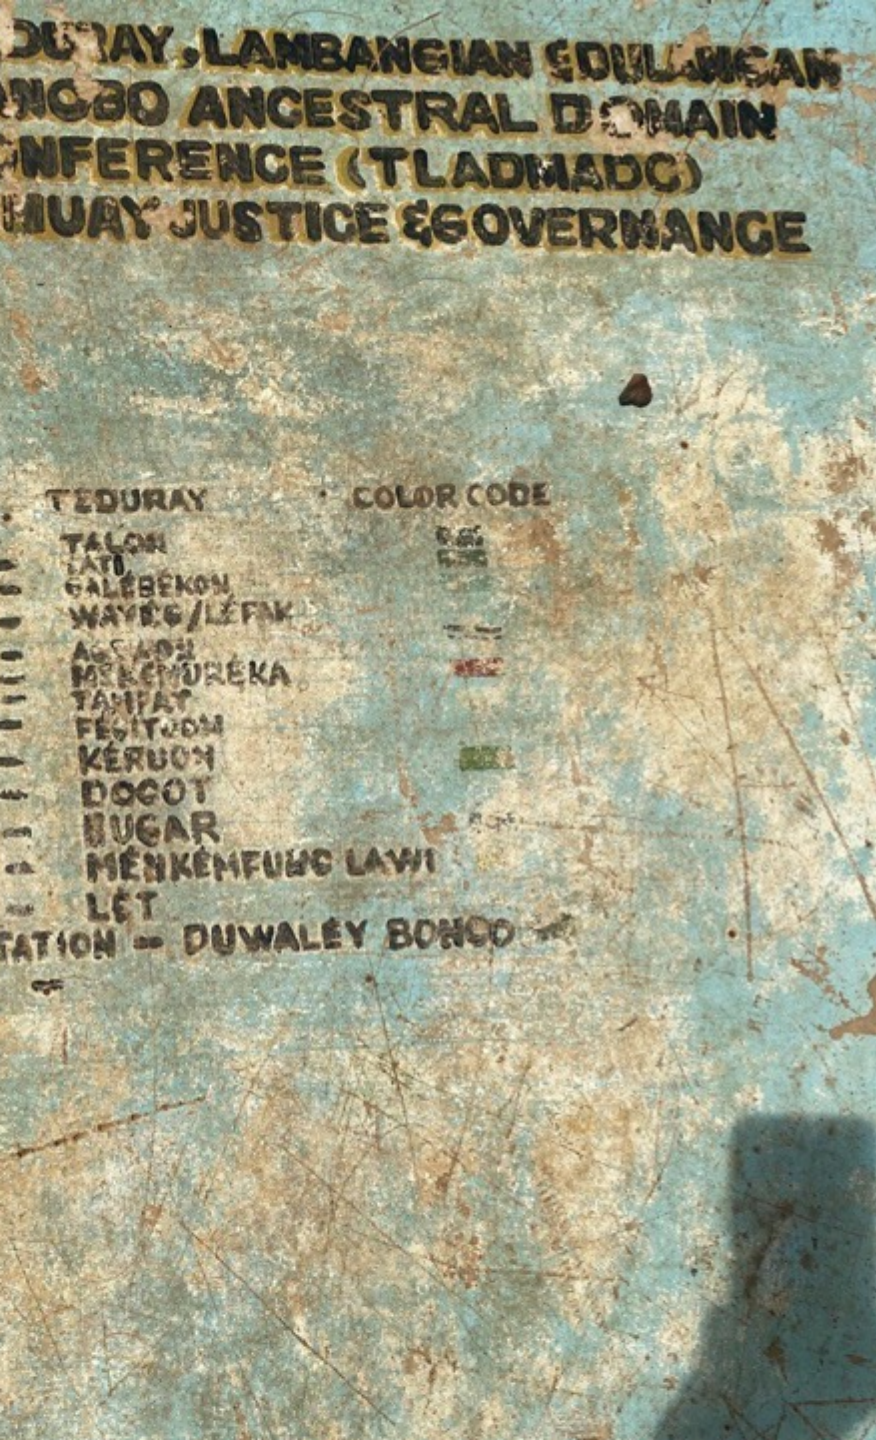 DURAY, LAMBANGIAN & DULANGAN
NOBO ANCESTRAL DOMAIN
NFERENCE (TLADMADC)
JUSTICE & GOVERNANCE
TEDURAY COLOR CODE
TALON
LATI
GALÉBÉKON
WAYÉG/LÉFAK
TAMFAT
KÉRUON
DOGOT
BUGAR
MÉNKÉMFUNG LAWI
LÉT
TATION - DUWALÉY BONGO